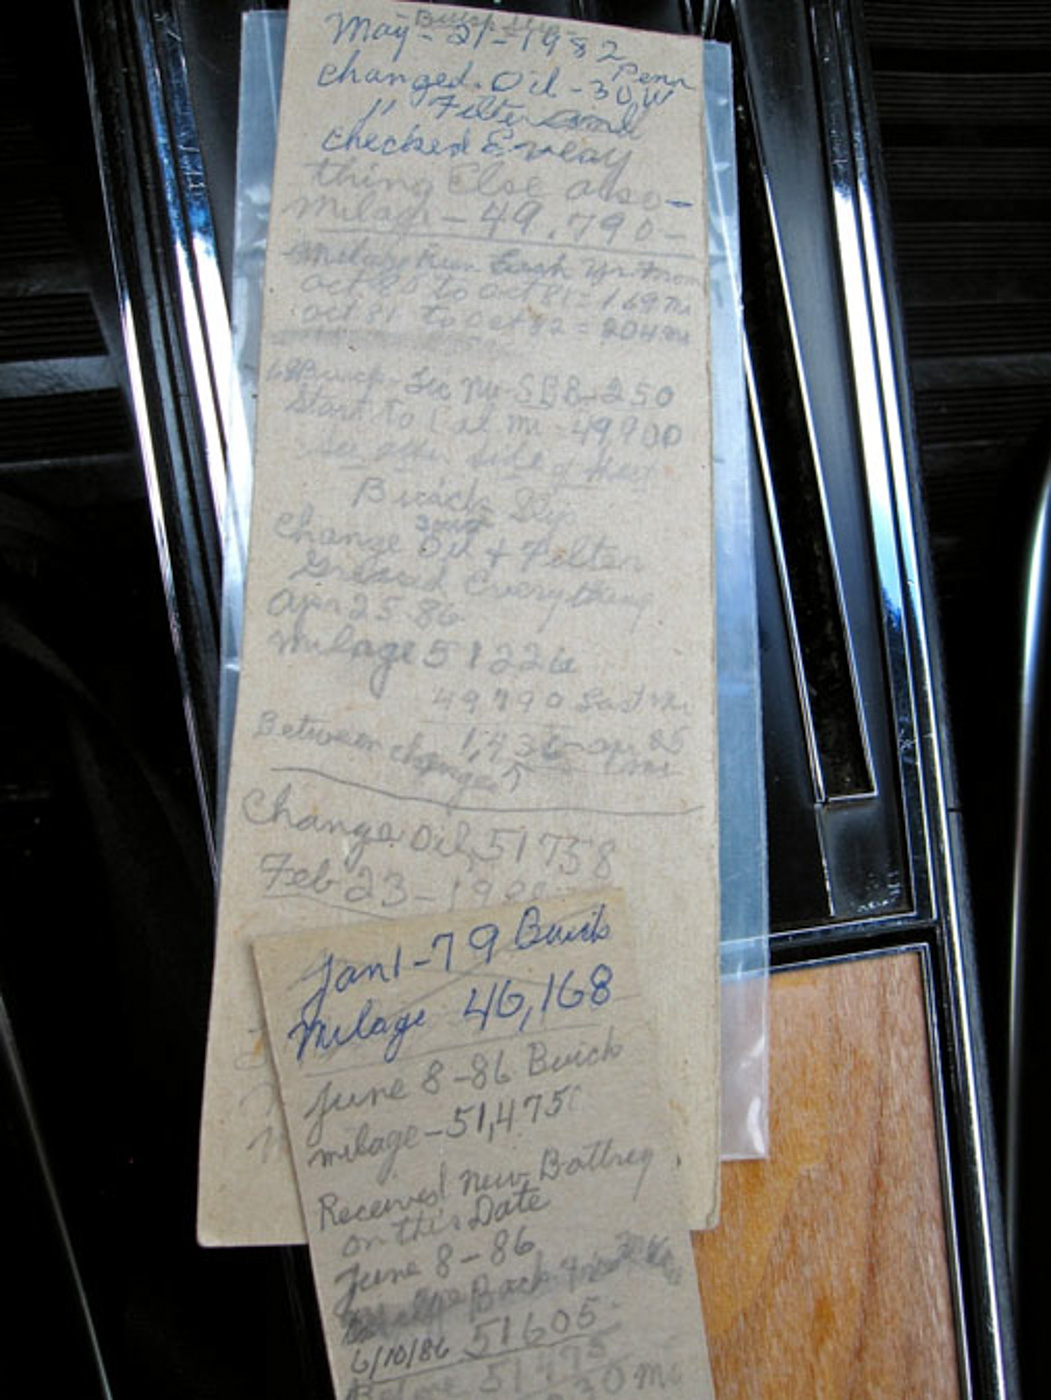 Buick Slip
May-21-1982
changed. Oil-30W Penn
" Filter and
checked Every
thing Else also-
Milage-49,790-
Milage Run Each Yr. from
Oct 80 to Oct 81=169 mi
Oct 81 to Oct 82=204 mi
68 Buick-Lic No-SEB-250
Start to Cal mi-49900
See other side of
Buick Slip
Change Oil & Filter
30wt
Greased Everything
Apr 25 86
Milage 51226
49790 Last Mi
1,436-apr 25
Between changes ↑
Change Oil, 51758
Feb 23-19
Jan 1-79 Buick
Milage 46,168
June 8-86 Buick
milage-51,475
Received New Battrey
on this Date
June 8-86
Back
6/10/86 51605
Before 51475
30 Mi